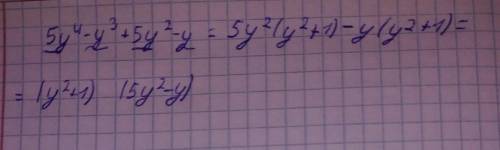 5y⁴-y³+5y²-y = 5y²(y²+1)-y(y2+1)=
= (y²+1) (5y²-y)